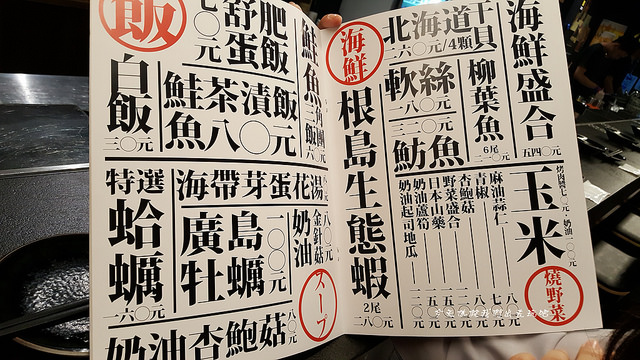 海鮮盛合
五四〇元
干貝
北海道
二六〇元/4顆
柳葉魚
6尾
軟絲
一八〇元
魴魚
三二〇元
海鮮
根島生態蝦
2尾
二八〇元
玉米
燒野菜
麻油蒜仁
青椒
杏鮑菇
野菜盛合
日本山藥
奶油蘆筍
奶油起司地瓜
飯
肥飯
舒蛋
七〇元
鮭魚
鮭魚茶漬飯
八〇元
白飯
三〇元
特選
蛤蠣
一六〇元
海帶芽蛋花湯
廣島牡蠣
一〇〇元
奶油金針菇
八〇元
スープ
奶油杏鮑菇
八〇元